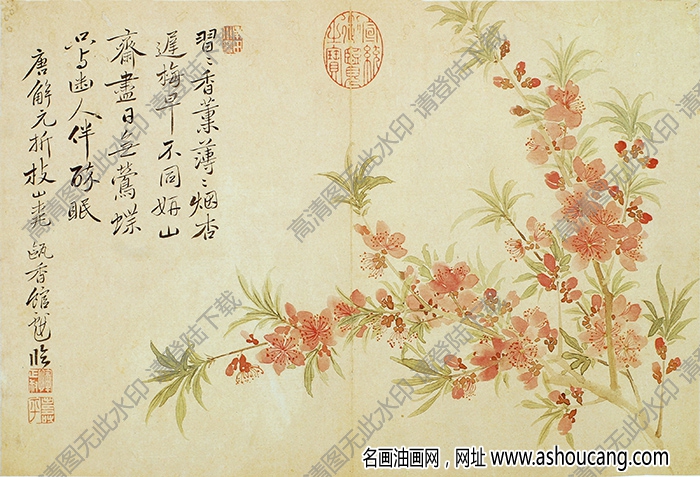 習〻香薰薄〻烟杏
遲梅早不同妍山
齋盡日無鶯蝶
只與幽人伴醉眠
唐解元折枝山桃 甌香館臨
宣統御覽之寶
高清图无此水印 请登陆下载
名画油画网，网址 www.ashoucang.com